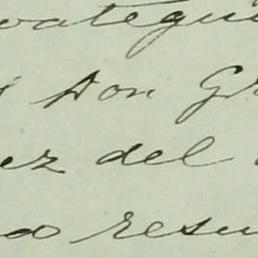 vategui
Don Gr
ez del
do resu